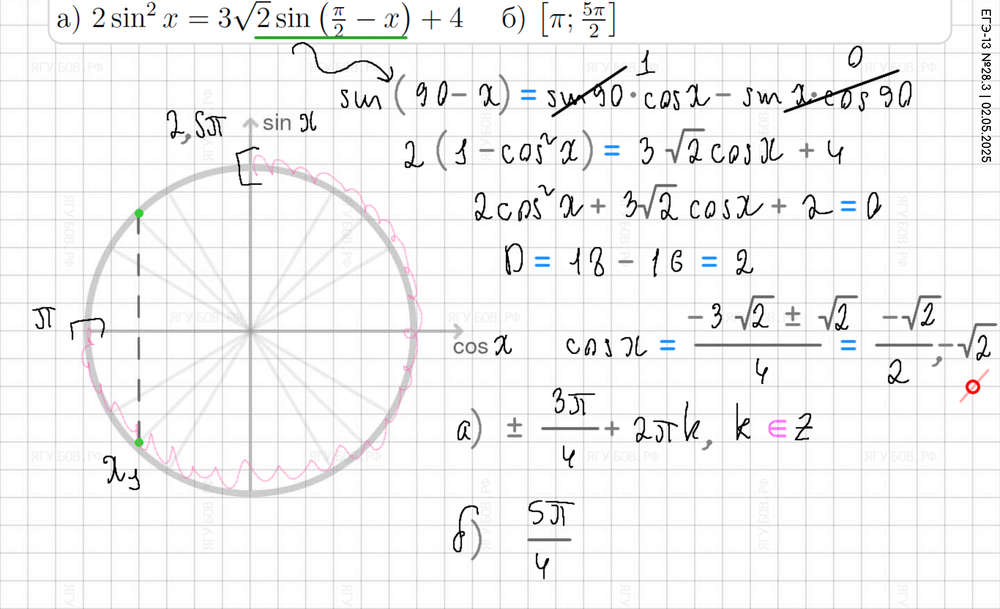 а) 2 sin² x = 3√2 sin (π/2 − x) + 4 б) [π; 5π/2]
ЕГЭ-13 №28.3 | 02.05.2025
sin (90 − x) = sin 90 · cos x − sin x · cos 90
1
0
2,5π
sin x
2 (1 − cos² x) = 3√2 cos x + 4
2cos² x + 3√2 cos x + 2 = 0
D = 18 − 16 = 2
π
cos x
cos x = (−3√2 ± √2)/4 = −√2/2, −√2
а) ± 3π/4 + 2πk, k ∈ Z
x₁
б) 5π/4
ЯГУБОВ.РФ